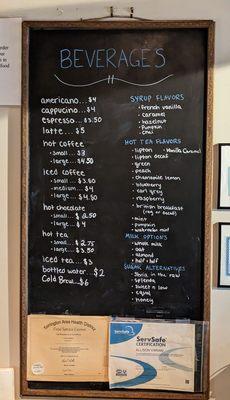 BEVERAGES
americano...$4
cappucino...$4
espresso...$3.50
latte...$5
hot coffee
• small...$3
• large...$4.50
iced coffee
• small...$3.50
• medium...$4
• large...$4.50
hot chocolate
• small...$2.50
• large...$4
hot tea
• small...$2.75
• large...$3.50
iced tea...$3
bottled water...$2
Cold Brew...$6
SYRUP FLAVORS
• french vanilla
• caramel
• hazelnut
• Pumpkin
• chai
HOT TEA FLAVORS
• lipton
• Vanilla Caramel
• lipton decaf
• green
• peach
• chamomile lemon
• blueberry
• earl grey
• raspberry
• british breakfast
(reg or decaf)
• mint
• pumpkin
MILK OPTIONS
• whole milk
• oat
• almond
• half + half
SUGAR ALTERNATIVES
• Stevia in the raw
• splenda
• sweet n low
• equal
• honey
Torrington Area Health District
ServSafe
ServSafe
CERTIFICATION